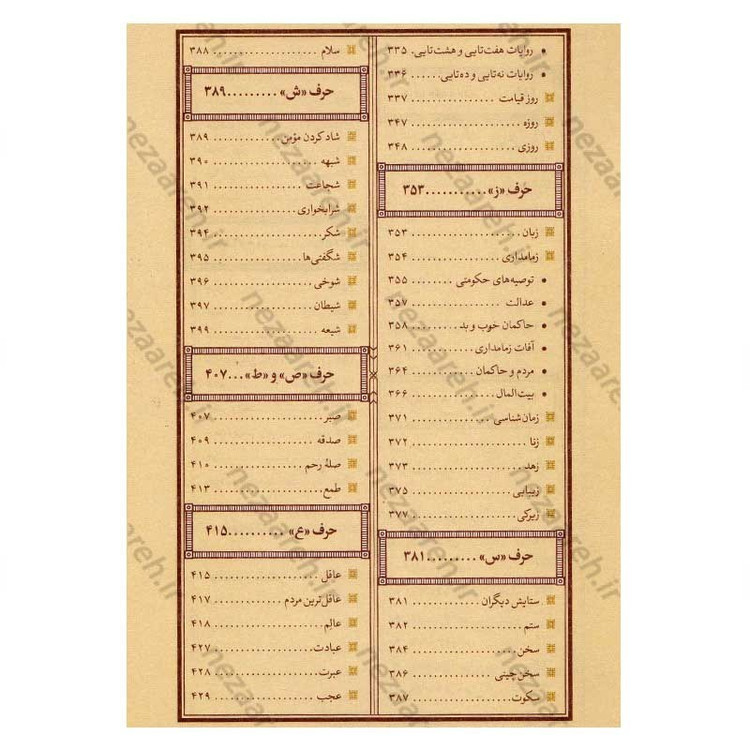 روایات هفت‌تایی و هشت‌تایی. ۳۳۵
روایات نه‌تایی و ده‌تایی...... ۳۳۶
روز قیامت ................ ۳۳۷
روزه ..................... ۳۴۷
روزی ..................... ۳۴۸
حرف «ز»...........۳۵۳
زبان ..................... ۳۵۳
زمامداری ................. ۳۵۴
توصیه‌های حکومتی ........ ۳۵۵
عدالت .................. ۳۵۷
حاکمان خوب و بد ......... ۳۵۸
آفات زمامداری ........... ۳۶۱
مردم و حاکمان ........... ۳۶۴
بیت‌المال ............... ۳۶۶
زمان‌شناسی ............... ۳۷۱
زنا ...................... ۳۷۲
زهد ...................... ۳۷۳
زیبایی ................... ۳۷۵
زیرکی .................... ۳۷۷
حرف «س» .........۳۸۱
ستایش دیگران ............. ۳۸۱
ستم ...................... ۳۸۲
سخن ...................... ۳۸۴
سخن‌چینی ................. ۳۸۶
سکوت ..................... ۳۸۷
سلام ..................... ۳۸۸
حرف «ش» .........۳۸۹
شاد کردن مؤمن............. ۳۸۹
شبهه ..................... ۳۹۰
شجاعت .................... ۳۹۱
شرابخواری ................ ۳۹۲
شکر ...................... ۳۹۴
شگفتی‌ها ................. ۳۹۵
شوخی ..................... ۳۹۶
شیطان .................... ۳۹۷
شیعه ..................... ۳۹۹
حرف «ص» و «ط»...۴۰۷
صبر ...................... ۴۰۷
صدقه ..................... ۴۰۹
صلهٔ رحم ................. ۴۱۰
طمع ...................... ۴۱۳
حرف «ع» ..........۴۱۵
عاقل ..................... ۴۱۵
عاقل‌ترین مردم ........... ۴۱۷
عالِم .................... ۴۱۸
عبادت .................... ۴۲۷
عبرت ..................... ۴۲۸
عجب ...................... ۴۲۹
nezaareh.ir